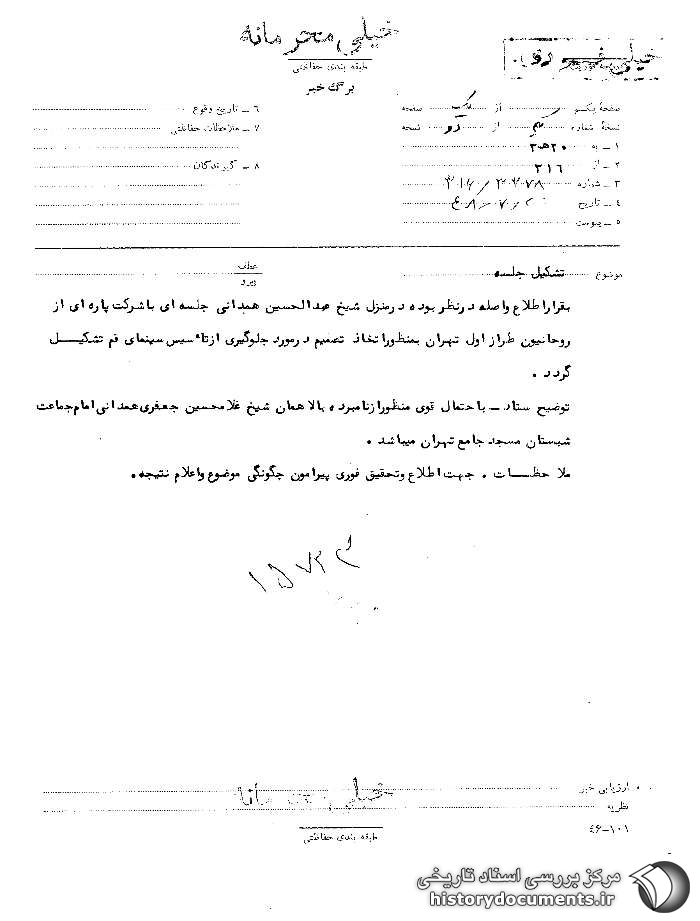 خیلی محرمانه
طبقه بندی حفاظتی
برگ خبر
خیلی فوری
صفحهٔ یکم از یک صفحه
نسخهٔ شماره یکم از دو نسخه
۱ – به ۲۰ﻫ۳
۲ – از ۳۱۶
۳ – شماره
۴ – تاریخ
۵ – پیوست
۶ – تاریخ وقوع
۷ – ملاحظات حفاظتی
۸ – گیرندگان
موضوع تشکیل جلسه
عطف
پیرو
بقراراطلاع واصله درنظر بوده درمنزل شیخ عبدالحسین همدانی جلسه ای باشرکت پاره ای از
روحانیون طراز اول تهران بمنظوراتخاذ تصمیم درمورد جلوگیری ازتاسیس سینمای قم تشکیل
گردد .
توضیح ستاد – با حتمال قوی منظورازنامبرده بالا همان شیخ غلامحسین جعفری همدانی امام جماعت
شبستان مسجد جامع تهران میباشد .
ملاحظات . جهت اطلاع وتحقیق فوری پیرامون چگونگی موضوع واعلام نتیجه .
ارزیابی خبر
نظریه
خیلی محرمانه
طبقه بندی حفاظتی
۴۶-۱۰۱
مرکز بررسی اسناد تاریخی
historydocuments.ir